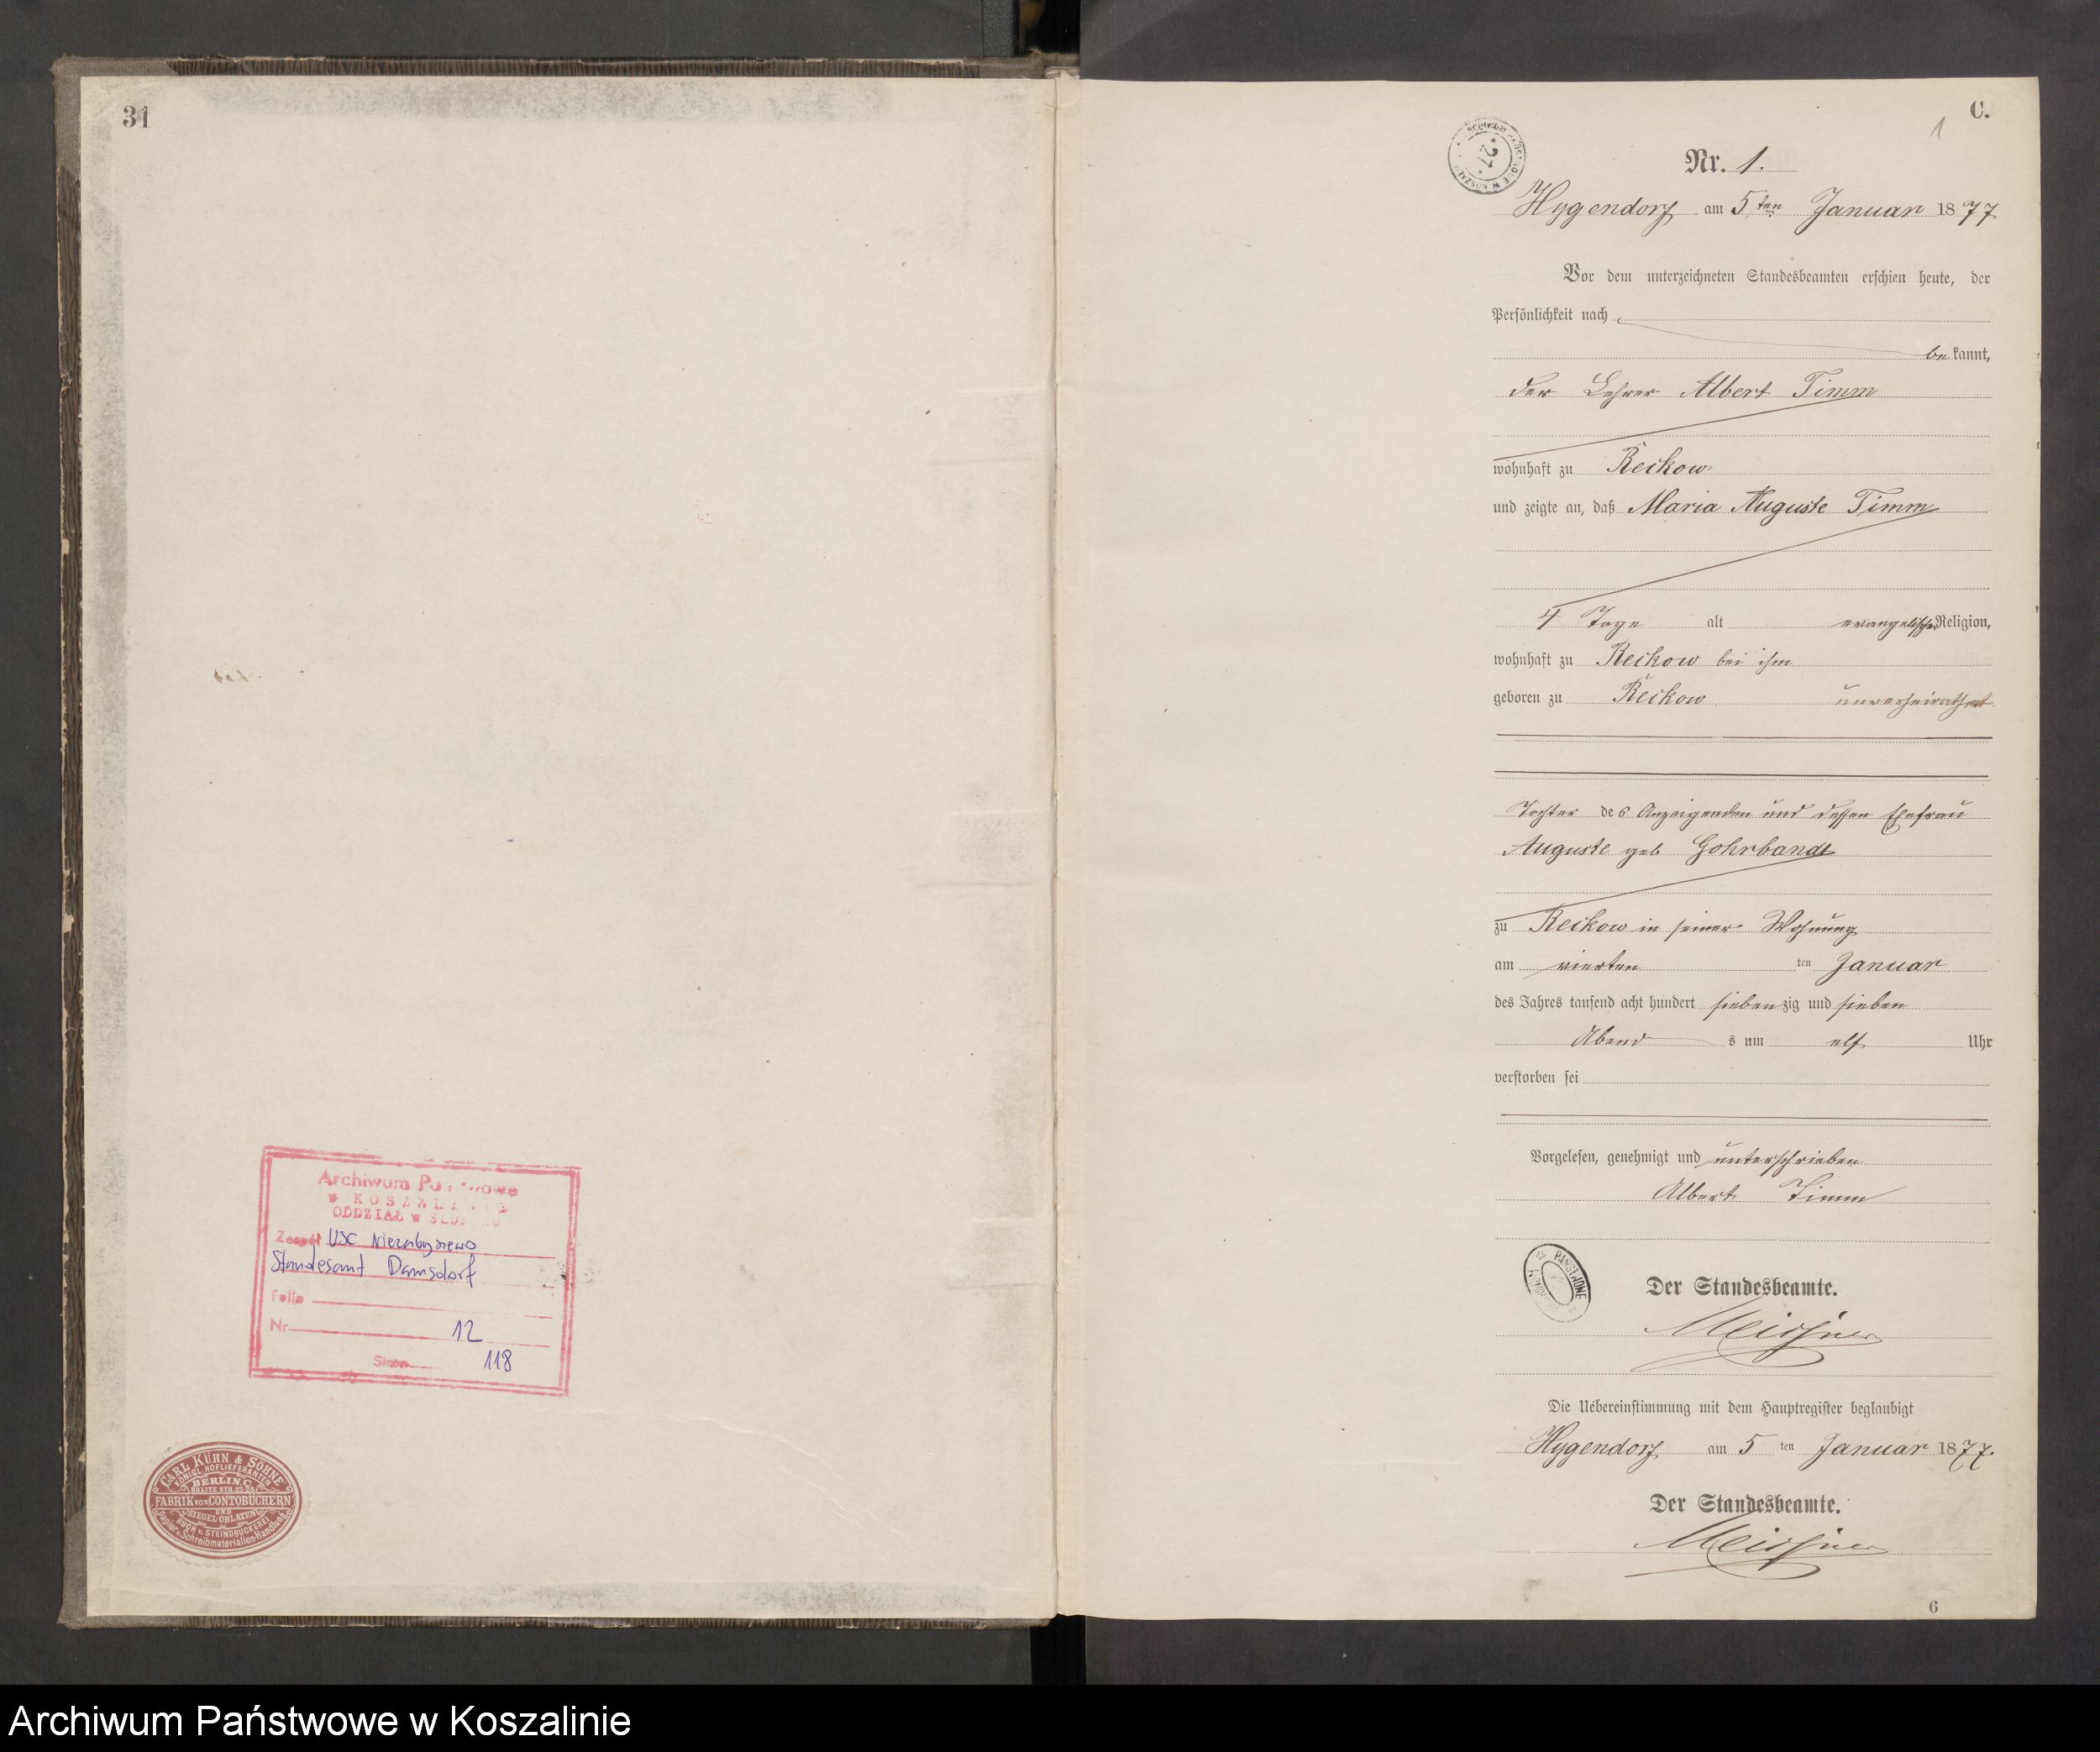 31
Archiwum Państwowe
w KOSZALINIE
ODDZIAŁ w
Zespół USC Niezabyszewo
Standesamt Damsdorf
Folio
Nr. 12
Stron 118
CARL KÜHN & SÖHNE
KÖNIGL. HOFLIEFERANTEN
BERLIN, C.
BREITE STR.
FABRIK VON CONTOBÜCHERN
UND
SIEGELOBLATEN
BUCH u. STEINDRUCKEREI
Papier u. Schreibmaterialien-Handlung
C.
1
27
Nr. 1.
Hygendorf am 5ten Januar 1877
Vor dem unterzeichneten Standesbeamten erschien heute, der
Persönlichkeit nach
bekannt,
der Lehrer Albert Timm
wohnhaft zu Reckow
und zeigte an, daß Maria Auguste Timm
4 Tage alt evangelischer Religion,
wohnhaft zu Reckow bei ihm
geboren zu Reckow unverheirathet
Tochter des Anzeigenden und dessen Ehefrau
Auguste geb Gohrbandt
zu Reckow in seiner Wohnung
am vierten ten Januar
des Jahres tausend acht hundert siebenzig und sieben
Abend s um elf Uhr
verstorben sei
Vorgelesen, genehmigt und unterschrieben
Albert Timm
PAŃSTWOWE
Der Standesbeamte.
Meissner
Die Uebereinstimmung mit dem Hauptregister beglaubigt
Hygendorf am 5 ten Januar 1877.
Der Standesbeamte.
Meissner
6
Archiwum Państwowe w Koszalinie